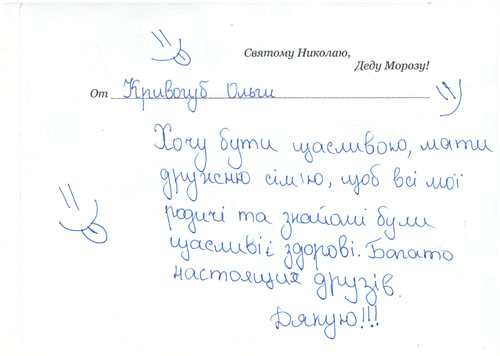 Святому Николаю,
Деду Морозу!
От Кривогуб Ольги
Хочу бути щасливою, мати
дружню сім'ю, щоб всі мої
родичі та знайомі були
щасливі і здорові. Багато
настоящих друзів.
Дякую!!!